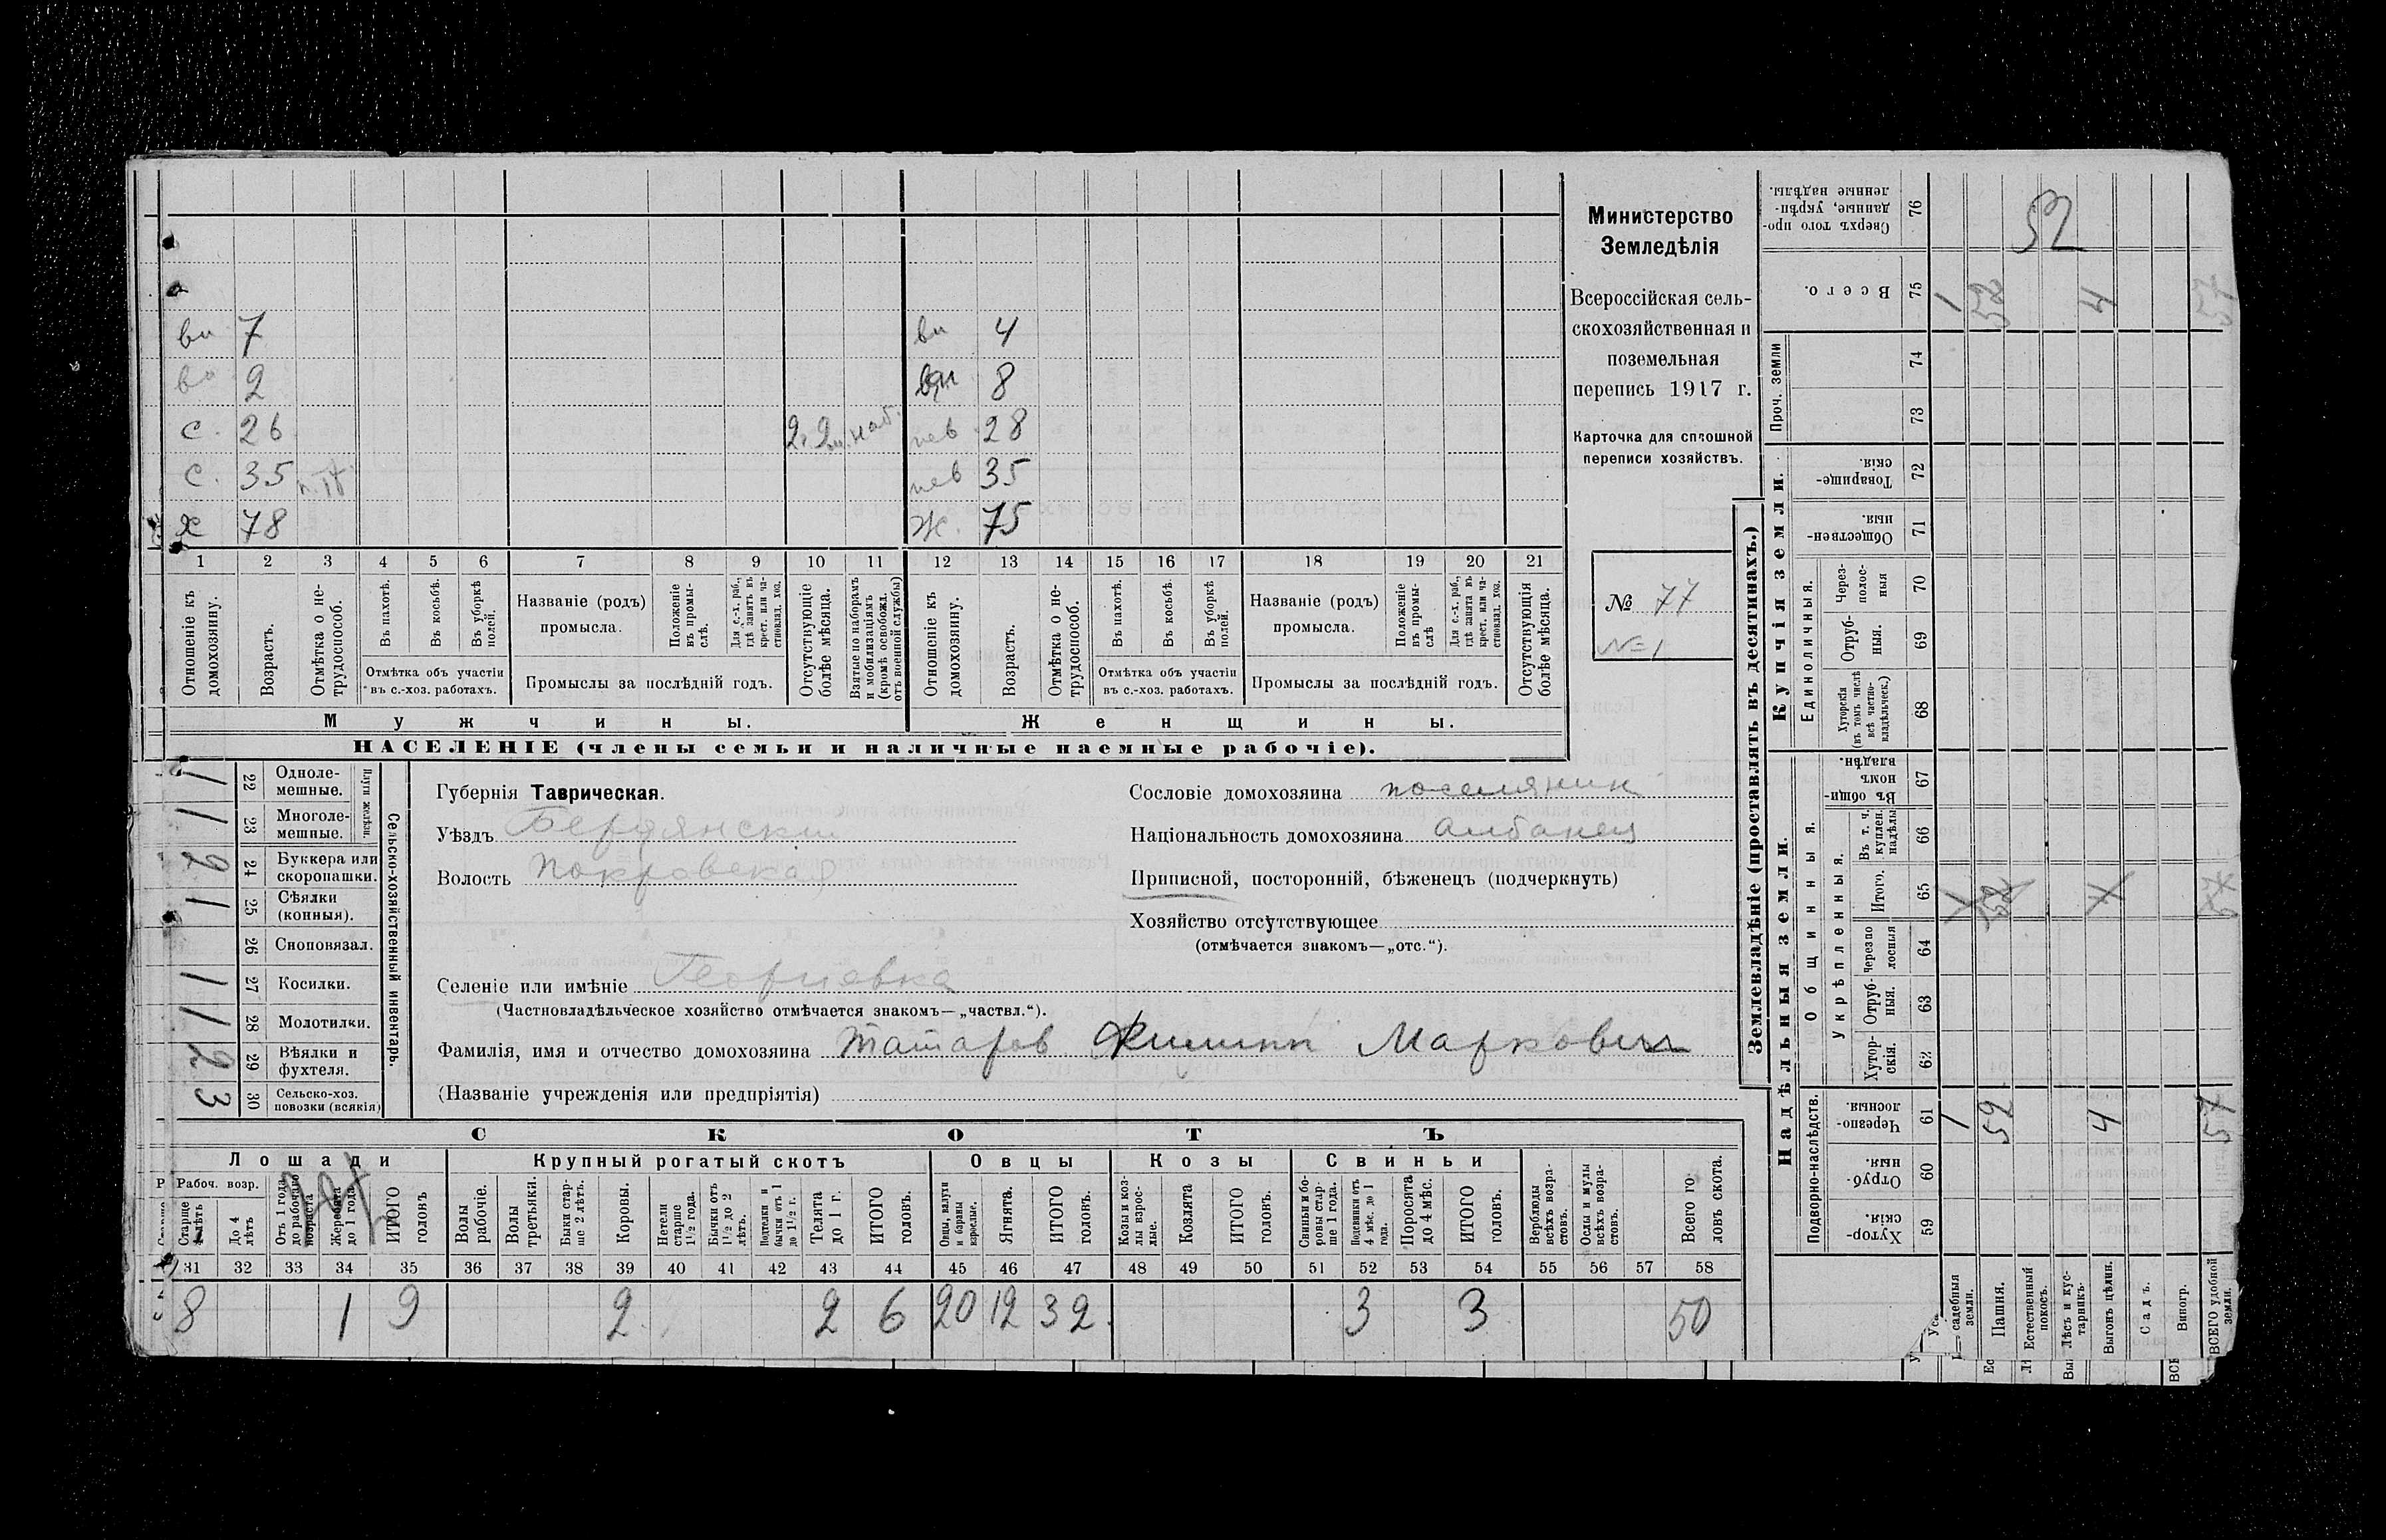 вн 7
вн 2
с. 26 2 г. 2 м. наб.
с. 35
х 78
вн 4
вн 8
нев 28
нев 35
ж. 75
1 2 3 4 5 6 7 8 9 10 11 12 13 14 15 16 17 18 19 20 21
Отношеніе къ домохозяину.
Возрастъ.
Отмѣтка о нетрудоспособ.
Въ пахотѣ.
Въ косьбѣ.
Въ уборкѣ полей.
Отмѣтка объ участіи въ с.-хоз. работахъ.
Названіе (родъ) промысла.
Положеніе въ промыслѣ.
Для с.-х. раб., гдѣ занятъ въ крест. или частновлад. хоз.
Промыслы за послѣдній годъ.
Отсутствующіе болѣе мѣсяца.
Взятые по наборамъ и мобилизаціямъ (кромѣ освобожд. отъ военной службы)
Отношеніе къ домохозяину.
Возрастъ.
Отмѣтка о нетрудоспособ.
Въ пахотѣ.
Въ косьбѣ.
Въ уборкѣ полей.
Отмѣтка объ участіи въ с.-хоз. работахъ.
Названіе (родъ) промысла.
Положеніе въ промыслѣ
Для с.-х. раб., гдѣ занята въ крест. или частновлад. хоз.
Промыслы за послѣдній годъ.
Отсутствующія болѣе мѣсяца.
Мужчины.
Женщины.
НАСЕЛЕНІЕ (члены семьи и наличные наемные рабочіе).
Министерство
Земледѣлія
Всероссійская сель-
скохозяйственная и
поземельная
перепись 1917 г.
Карточка для сплошной
переписи хозяйствъ.
№ 77
№ 1
Сельско-хозяйственный инвентарь.
Плуги желѣзн.
1 22 Однолемешные.
1 23 Многолемешные.
2 24 Буккера или скоропашки.
1 25 Сѣялки (конныя).
26 Сноповязал.
1 27 Косилки.
1 28 Молотилки.
2 29 Вѣялки и фухтеля.
3 30 Сельско-хоз. повозки (всякія)
Губернія Таврическая.
Уѣздъ Бердянский
Волость Покровская
Селеніе или имѣніе Георгиевка
(Частновладѣльческое хозяйство отмѣчается знакомъ—„частвл.“).
Фамилія, имя и отчество домохозяина Татаров Филипп Маркович
(Названіе учрежденія или предпріятія)
Сословіе домохозяина поселянин
Національность домохозяина албанец
Приписной, посторонній, бѣженецъ (подчеркнуть)
Хозяйство отсутствующее
(отмѣчается знакомъ—„отс.“).
СКОТЪ
Лошади
Крупный рогатый скотъ
Овцы
Козы
Свиньи
Рабоч. возр.
Старше 4 лѣтъ
До 4 лѣтъ
Отъ 1 года до рабочаго возраста
Жеребята до 1 года
ИТОГО головъ
Волы рабочіе.
Волы третьяки.
Быки старше 2 лѣтъ.
Коровы.
Нетели старше 1½ года.
Бычки отъ 1½ до 2 лѣтъ.
Подтелки и бычки отъ 1 до 1½ г.
Телята до 1 г.
ИТОГО головъ.
Овцы, валухи и бараны взрослые.
Ягнята.
ИТОГО головъ.
Козы и козлы взрослые.
Козлята
ИТОГО головъ.
Свиньи и боровы старше 1 года.
Подсвинки отъ 4 мѣс. до 1 года.
Поросята до 4 мѣс.
ИТОГО головъ.
Верблюды всѣхъ возрастовъ.
Ослы и мулы всѣхъ возрастовъ.
Всего головъ скота.
31 32 33 34 35 36 37 38 39 40 41 42 43 44 45 46 47 48 49 50 51 52 53 54 55 56 57 58
8 1 9 2 2 6 20 12 32 3 3 50
Землевладѣніе (проставлять въ десятинахъ.)
Купчія земли.
Надѣльныя земли.
Сверхъ того проданные, укрѣпленные надѣлы. 76 52
Всего. 75 1 52 4 57
Проч. земли
74
73
Товарищескія. 72
Общественныя. 71
Единоличныя.
Черезполосныя 70
Отрубныя. 69
Хуторскія (въ томъ числѣ всѣ частновладѣльческ.) 68
Общинныя.
Въ общинномъ владѣн. 67
Укрѣпленныя.
Въ т. ч. куплен. надѣлы 66
Итого. 65 1 52 4 57
Черезполосныя 64
Отрубныя. 63
Хуторскія. 62
Подворно-наслѣдств.
Черезполосныя. 61 1 52 4 57
Отрубныя. 60
Хуторскія. 59
Усадебныя земли.
Пашня.
Естественный покосъ.
Лѣсъ и кустарникъ.
Выгонъ цѣлин.
Садъ.
Виногр.
ВСЕГО удобной земли.